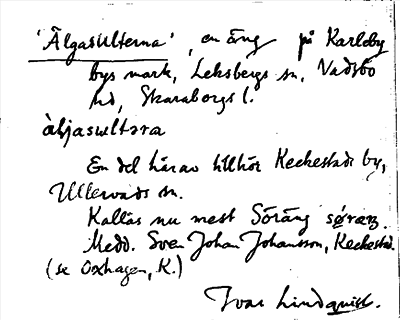 'Älgasulterna', en äng på Karleby
bys mark, Leksbergs sn, Vadsbo
hd, Skaraborgs l.
àljasultəra
En del härav tillhör Keckestads by,
Ullervads sn.
Kallas nu mest Söräng søræŋ.
Medd. Sven Johan Johansson, Keckestad.
(se Oxhagen, K.)
Ivar Lindquist.